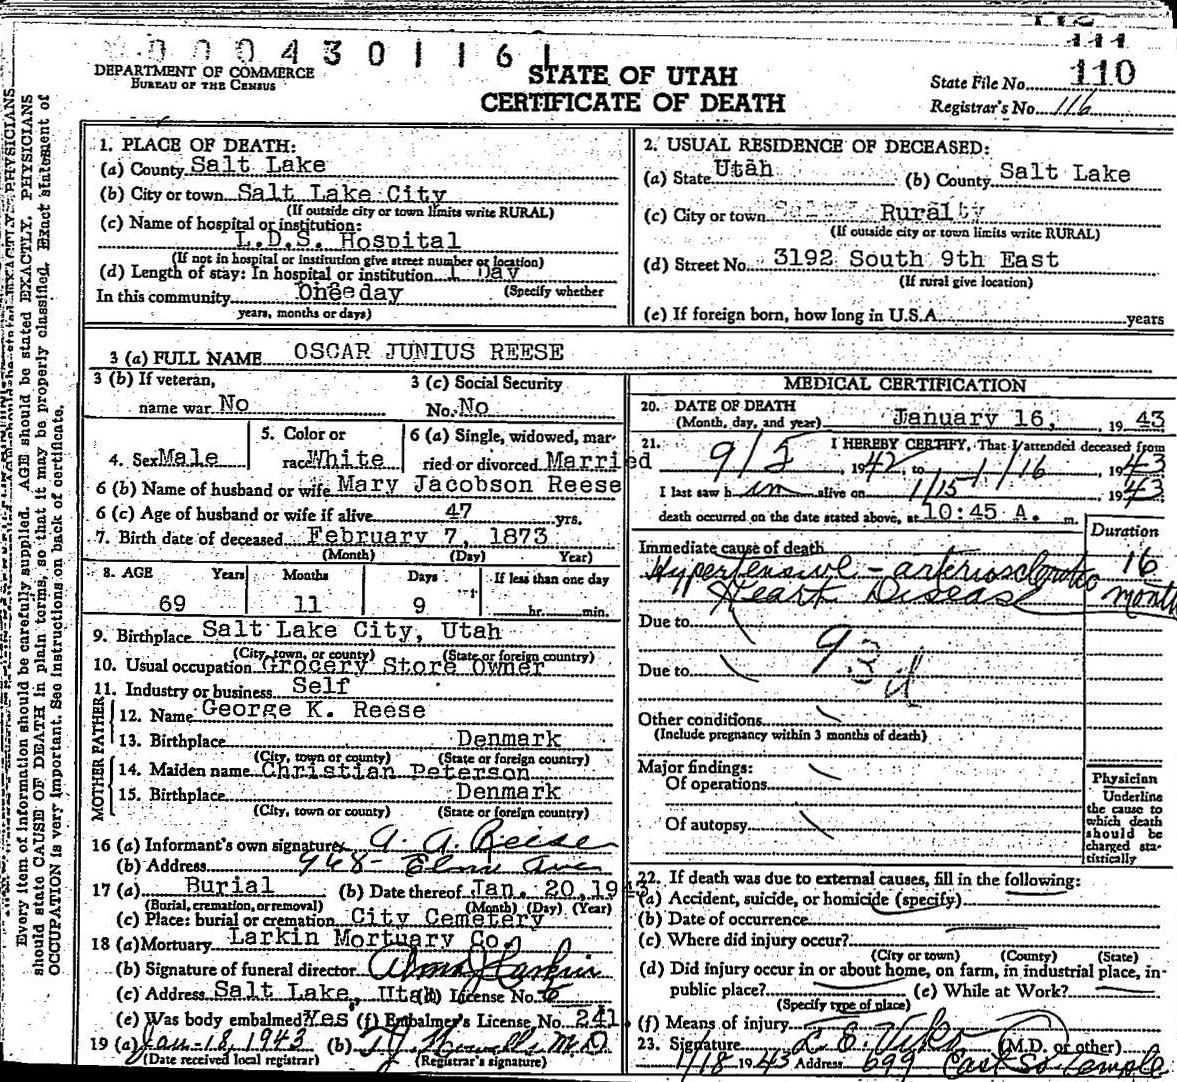 0004301161
110
DEPARTMENT OF COMMERCE
BUREAU OF THE CENSUS
STATE OF UTAH
CERTIFICATE OF DEATH
State File No. 110
Registrar's No. 116
Every item of information should be carefully supplied. AGE should be stated EXACTLY. PHYSICIANS
should state CAUSE OF DEATH in plain terms, so that it may be properly classified. Exact statement of
OCCUPATION is very important. See instructions on back of certificate.
1. PLACE OF DEATH:
(a) County Salt Lake
(b) City or town Salt Lake City
(If outside city or town limits write RURAL)
(c) Name of hospital or institution:
L.D.S. Hospital
(If not in hospital or institution give street number or location)
(d) Length of stay: In hospital or institution 1 Day
In this community One day (Specify whether
years, months or days)
2. USUAL RESIDENCE OF DECEASED:
(a) State Utah (b) County Salt Lake
(c) City or town Rural
(If outside city or town limits write RURAL)
(d) Street No. 3192 South 9th East
(If rural give location)
(e) If foreign born, how long in U.S.A. years
3 (a) FULL NAME OSCAR JUNIUS REESE
3 (b) If veteran,
name war No
3 (c) Social Security
No. No
4. Sex Male
5. Color or
race White
6 (a) Single, widowed, mar-
ried or divorced Married
6 (b) Name of husband or wife Mary Jacobson Reese
6 (c) Age of husband or wife if alive 47 yrs.
7. Birth date of deceased February 7, 1873
(Month) (Day) Year)
8. AGE Years Months Days If less than one day
69 11 9 hr. min.
9. Birthplace Salt Lake City, Utah
(City, town, or county) (State or foreign country)
10. Usual occupation Grocery Store Owner
11. Industry or business Self
FATHER
12. Name George K. Reese
13. Birthplace Denmark
(City, town or county) (State or foreign country)
MOTHER
14. Maiden name Christian Peterson
15. Birthplace Denmark
(City, town or county) (State or foreign country)
16 (a) Informant's own signature A. A. Reese
(b) Address 948 - Elm Ave
17 (a) Burial (b) Date thereof Jan. 20, 1943
(Burial, cremation, or removal) (Month) (Day) (Year)
(c) Place: burial or cremation City Cemetery
18 (a) Mortuary Larkin Mortuary Co.
(b) Signature of funeral director Alma J Larkin
(c) Address Salt Lake, Utah (d) License No. 6
(e) Was body embalmed? Yes (f) Embalmer's License No. 241.
19 (a) Jan-18, 1943 (b) T. J. Howells M.D.
(Date received local registrar) (Registrar's signature)
MEDICAL CERTIFICATION
20. DATE OF DEATH
(Month, day, and year) January 16, 1943
21. I HEREBY CERTIFY, That I attended deceased from
9/5 1942, to 1/16 1943
I last saw h im alive on 1/15 1943
death occurred on the date stated above, at 10:45 A. m.
Duration
Immediate cause of death
Hypertensive - arteriosclerotic 16
Heart Disease months
Due to
93 d
Due to
Other conditions
(Include pregnancy within 3 months of death)
Major findings:
Of operations
Of autopsy
Physician
Underline
the cause to
which death
should be
charged sta-
tistically
22. If death was due to external causes, fill in the following:
(a) Accident, suicide, or homicide (specify)
(b) Date of occurrence
(c) Where did injury occur?
(City or town) (County) (State)
(d) Did injury occur in or about home, on farm, in industrial place, in
public place? (e) While at Work?
(Specify type of place)
(f) Means of injury
23. Signature L. E. Viko (M.D. or other)
1/18 1943 Address 699 East So Temple